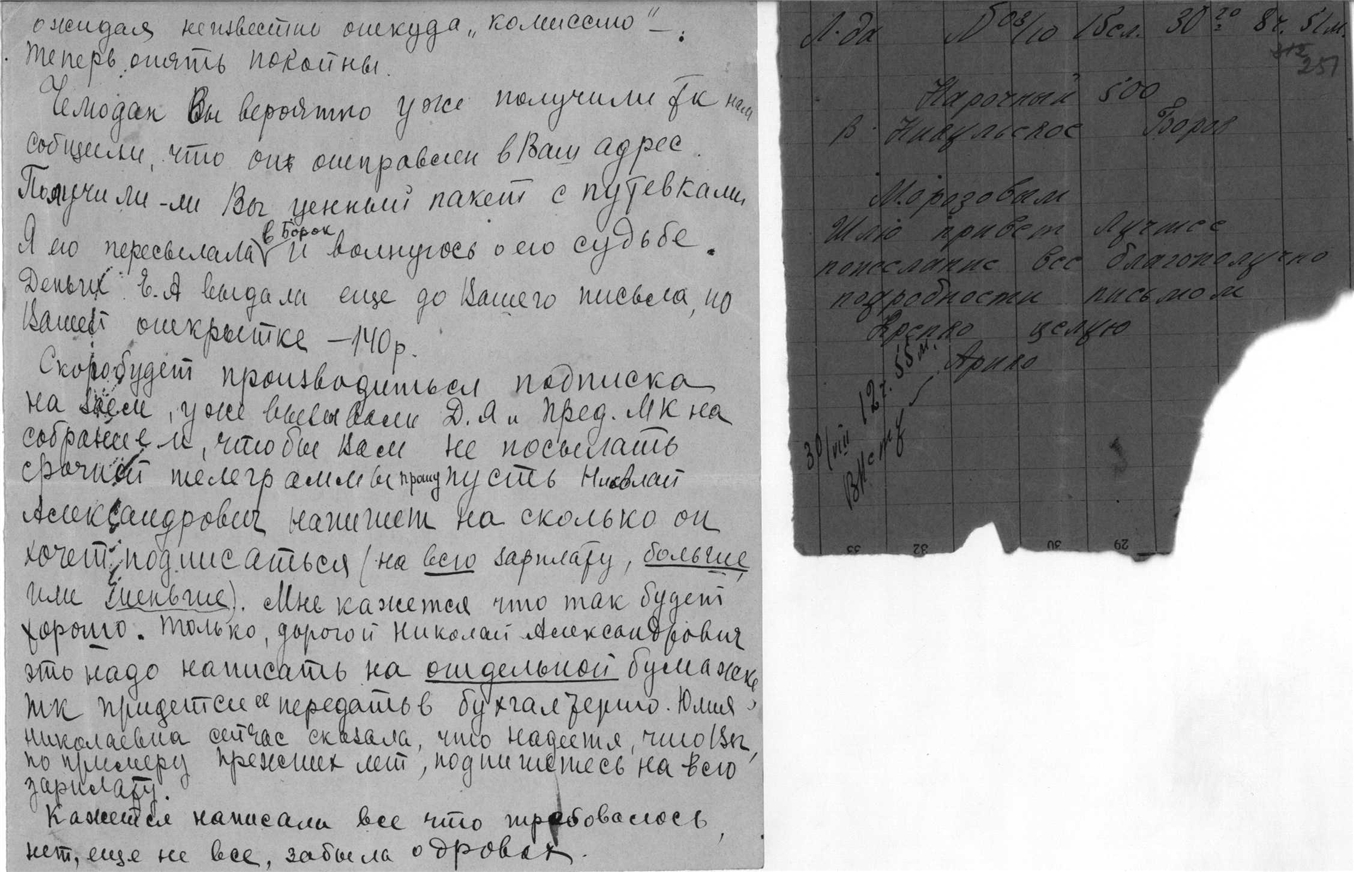 ожидая неизвестно откуда „комиссию" —.
Теперь опять покойны.
Чемодан Вы вероятно уже получили тк нам
собщили, что он отправлен в Ваш адрес.
Получили-ли Вы ценный пакет с путевками
Я его пересылала в Борок и волнуюсь о его судьбе.
Деньги Е.А выдали еще до Вашего письма, по
Вашей открытке —140 р.
Скоро будет производиться подписка
на заем, уже вызывали Д.А и пред. МК на
собрание и, чтобы Вам не посылать
срочной телеграммы прошу пусть Николай
Александрович напишет на сколько он
хочет подписаться (на всю зарплату, больше
или меньше). Мне кажется что так будет
хорошо. Только, дорогой Николай Александрович
это надо написать на отдельной бумажке,
тк придется ее передать в бухгалтерию. Юлия
Николаевна сейчас сказала, что надеется, что Вы,
по примеру прежних лет, подпишетесь на всю
зарплату.
Кажется написала все что требовалось,
нет, еще не все, забыла о дровах.
Л-да 15сл. 30 8ч. 51м.
251
Нарочный 500
в. Никульское Борок
Морозовым
Шлю привет лучшее
пожелание все благополучно
подробности письмом
Крепко целую
30/VII 12ч. 55м.